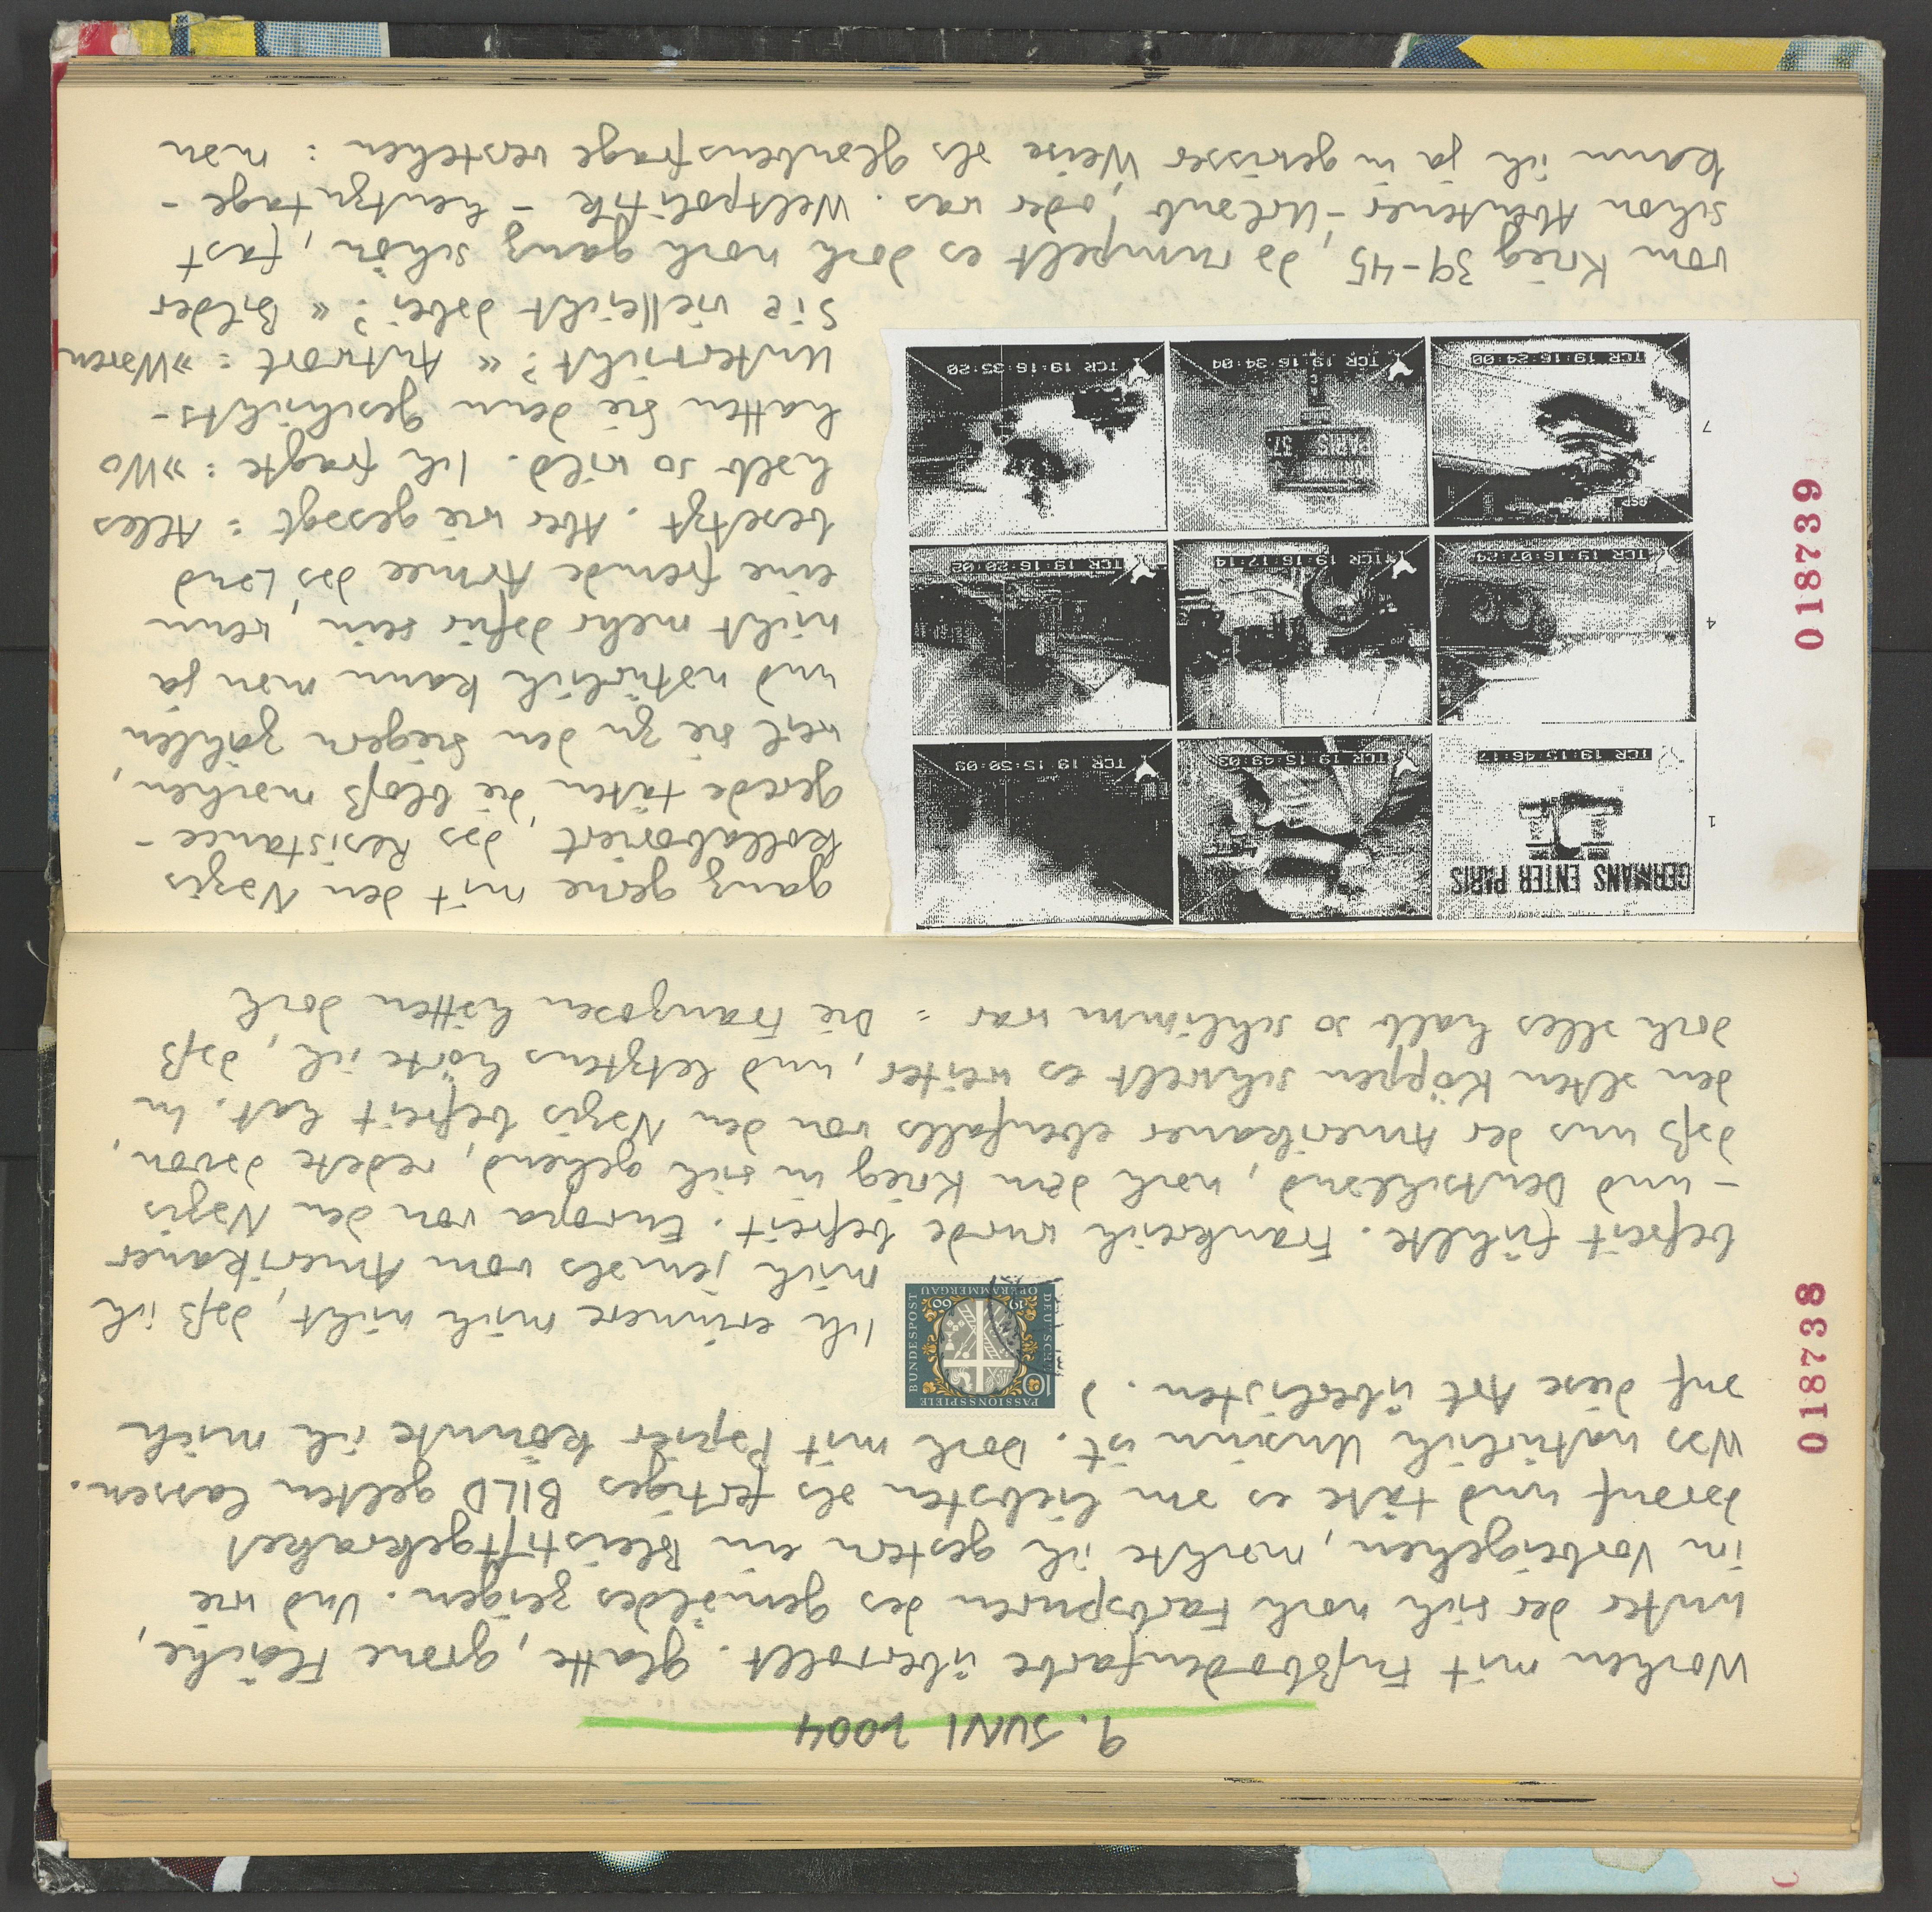 9. JUNI 2004
Wochen mit Fußbodenfarbe überrollt. Glatte, graue Fläche,
unter der sich noch Farbspuren des Gemäldes zeigen. Und wie
im Vorbeigehen, machte ich gestern ein Bleistiftgekrakel
darauf und täte es am liebsten als fertiges BILD gelten lassen.
Was natürlich Unsinn ist. Doch mit Papier könnte ich mich
auf diese Art überlisten. )
PASSIONSSPIELE
10
DEUTSCHE
BUNDESPOST
19 60
OBERAMMERGAU
Ich erinnere mich nicht, daß ich
mich jemals vom Amerikaner
befreit fühlte. Frankreich wurde befreit. Europa von den Nazis
- und Deutschland, nach dem Krieg in sich gehend, redete davon,
daß uns der Amerikaner ebenfalls von den Nazis befreit hat. In
den alten Köppen schwelt es weiter, und letztens hörte ich, daß
doch alles halb so schlimm war : Die Franzosen hätten doch
018738
ganz gerne mit den Nazis
kollaboriert, das Resistance-
Gerede täten die bloß machen,
weil sie zu den Siegern zählen
und natürlich kann man ja
nicht mehr dafür sein, wenn
eine fremde Armee das Land
besetzt. Aber wie gesagt : Alles
halb so wild. Ich fragte : »Wo
hatten Sie denn Geschichts-
Unterricht?« Antwort : »Waren
Sie vielleicht dabei?« Bilder
vom Krieg 39-45, da rumpelt es doch noch ganz schön, fast
schon Abenteuer-Urlaub, oder was. Weltpolitik - heutzutage -
kann ich ja in gewisser Weise als Glaubensfrage verstehen : man
1
GERMANS ENTER PARIS
TCR 19:15:46:17
TCR 19:15:49:03
TCR 19:15:50:09
4
TCR 19:16:07:24
TCR 19:16:17:14
TCR 19:16:20:02
7
TCR 19:16:24:00
PARIS 37
TCR 19:16:34:04
TCR 19:16:33:20
018739